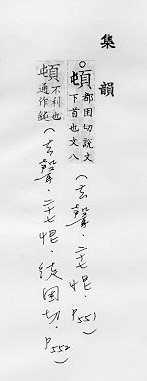 集韻
頓都困切說文下首也文八(去聲.二十七恨.P551)
頓不利也通作鈍(去聲.二十七恨.徒困切.P552)